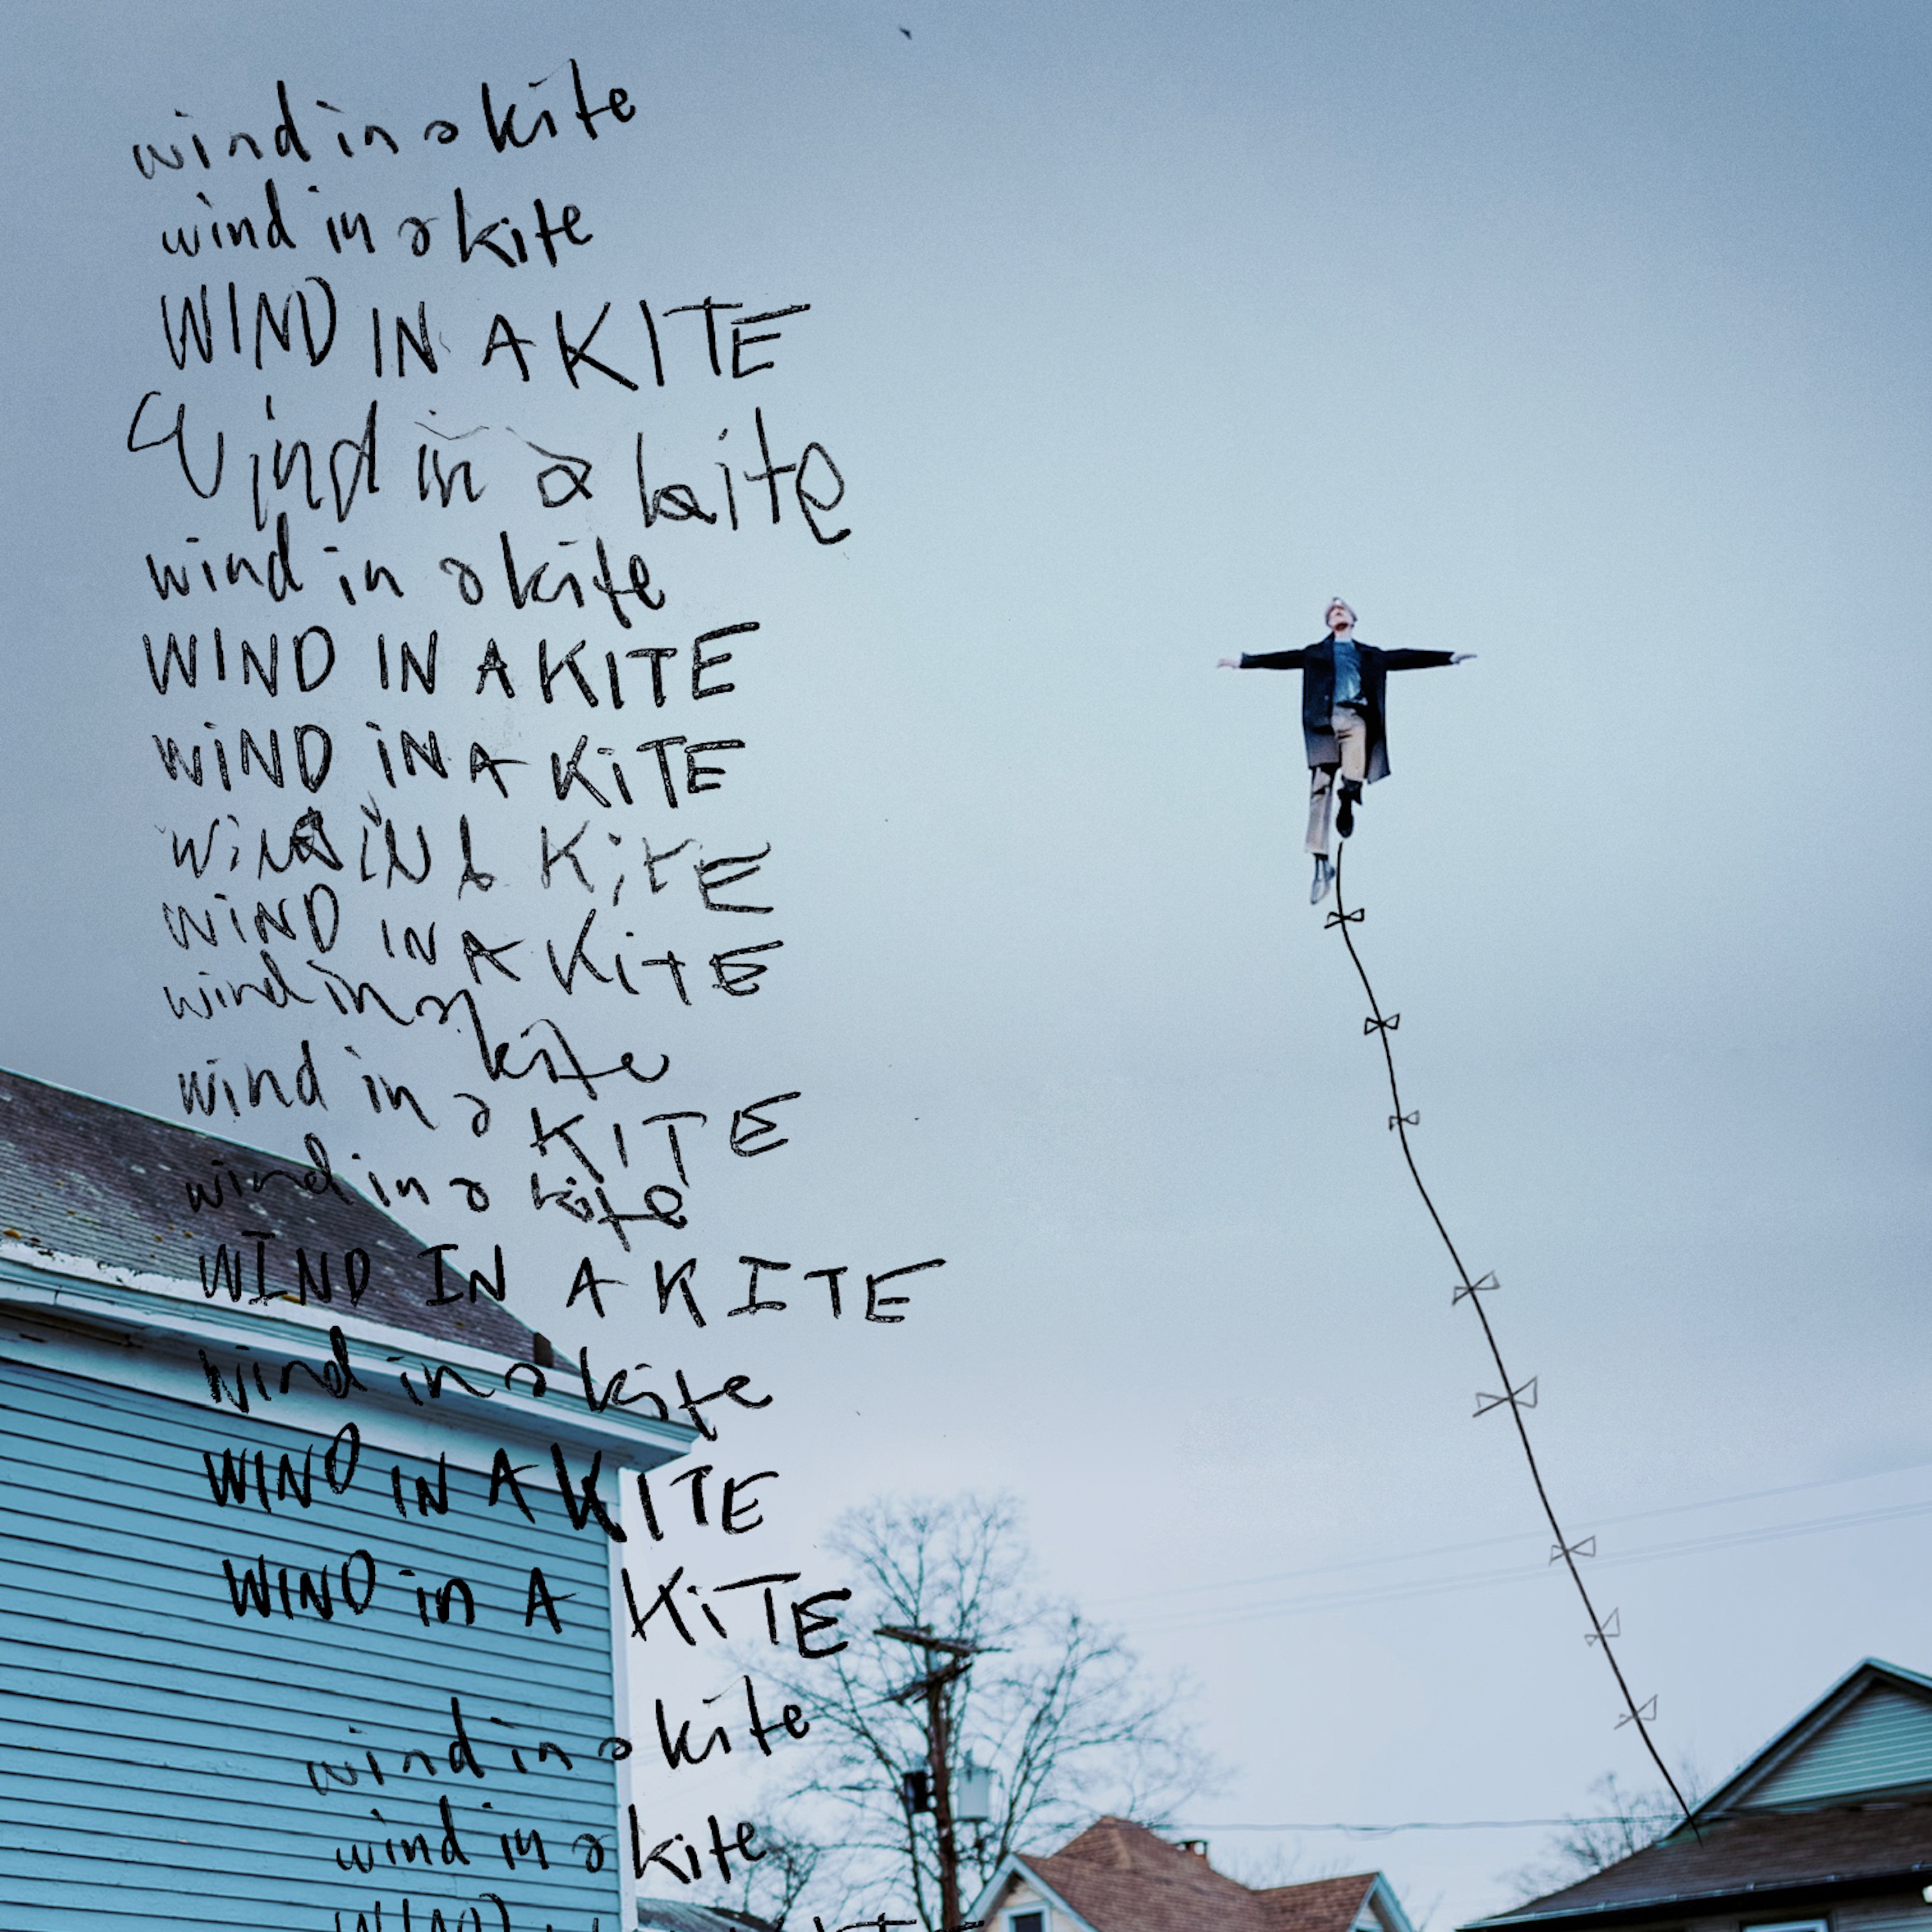 wind in a kite
wind in a kite
WIND IN A KITE
Wind in a kite
wind in a kite
WIND IN A KITE
WiND iN A KiTE
WiND iN A KitE
WiND IN A KitE
wind in a kite
wind in a KITE
wind in a kite
WIND IN A KITE
wind in a kite
WIND IN A KITE
WIND in A KiTE
wind in a kite
wind in a kite
WIND